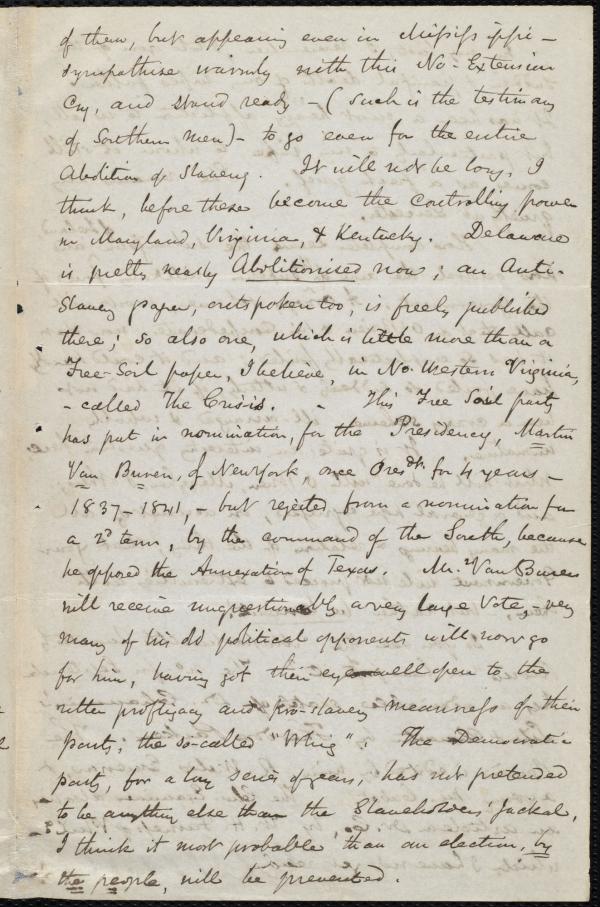 of them, but appearing even in Mississippi -
sympathise warmly with this No-Extension
Cry, and stand ready - (such is the testimony
of Southern men) - to go even for the entire
Abolition of Slavery. It will not be long, I
think, before these become the controlling power
in Maryland, Virginia, & Kentucky. Delaware
is pretty nearly Abolitionised now; an Anti-
Slavery paper, outspoken too, is freely published
there; so also one, which is little more than a
Free-Soil paper, I believe, in No. Western Virginia,
- called The Crisis. - This Free Soil party
has put in nomination, for the Presidency, Martin
Van Buren, of New York, once Presdt. for 4 years -
1837-1841, - but rejected from a nomination for
a 2d term, by the command of the South, because
he opposed the Annexation of Texas. Mr. Van Buren
will receive unquestionably a very large Vote, - very
many of his old political opponents will now go
for him, having got their eyes well open to the
utter profligacy and pro-slavery meanness of their
party; the so-called "Whig". The Democratic
party, for a long series of years, has not pretended
to be anything else than the Slaveholders' Jackal,
I think it most probable that an election, by
the people, will be prevented.